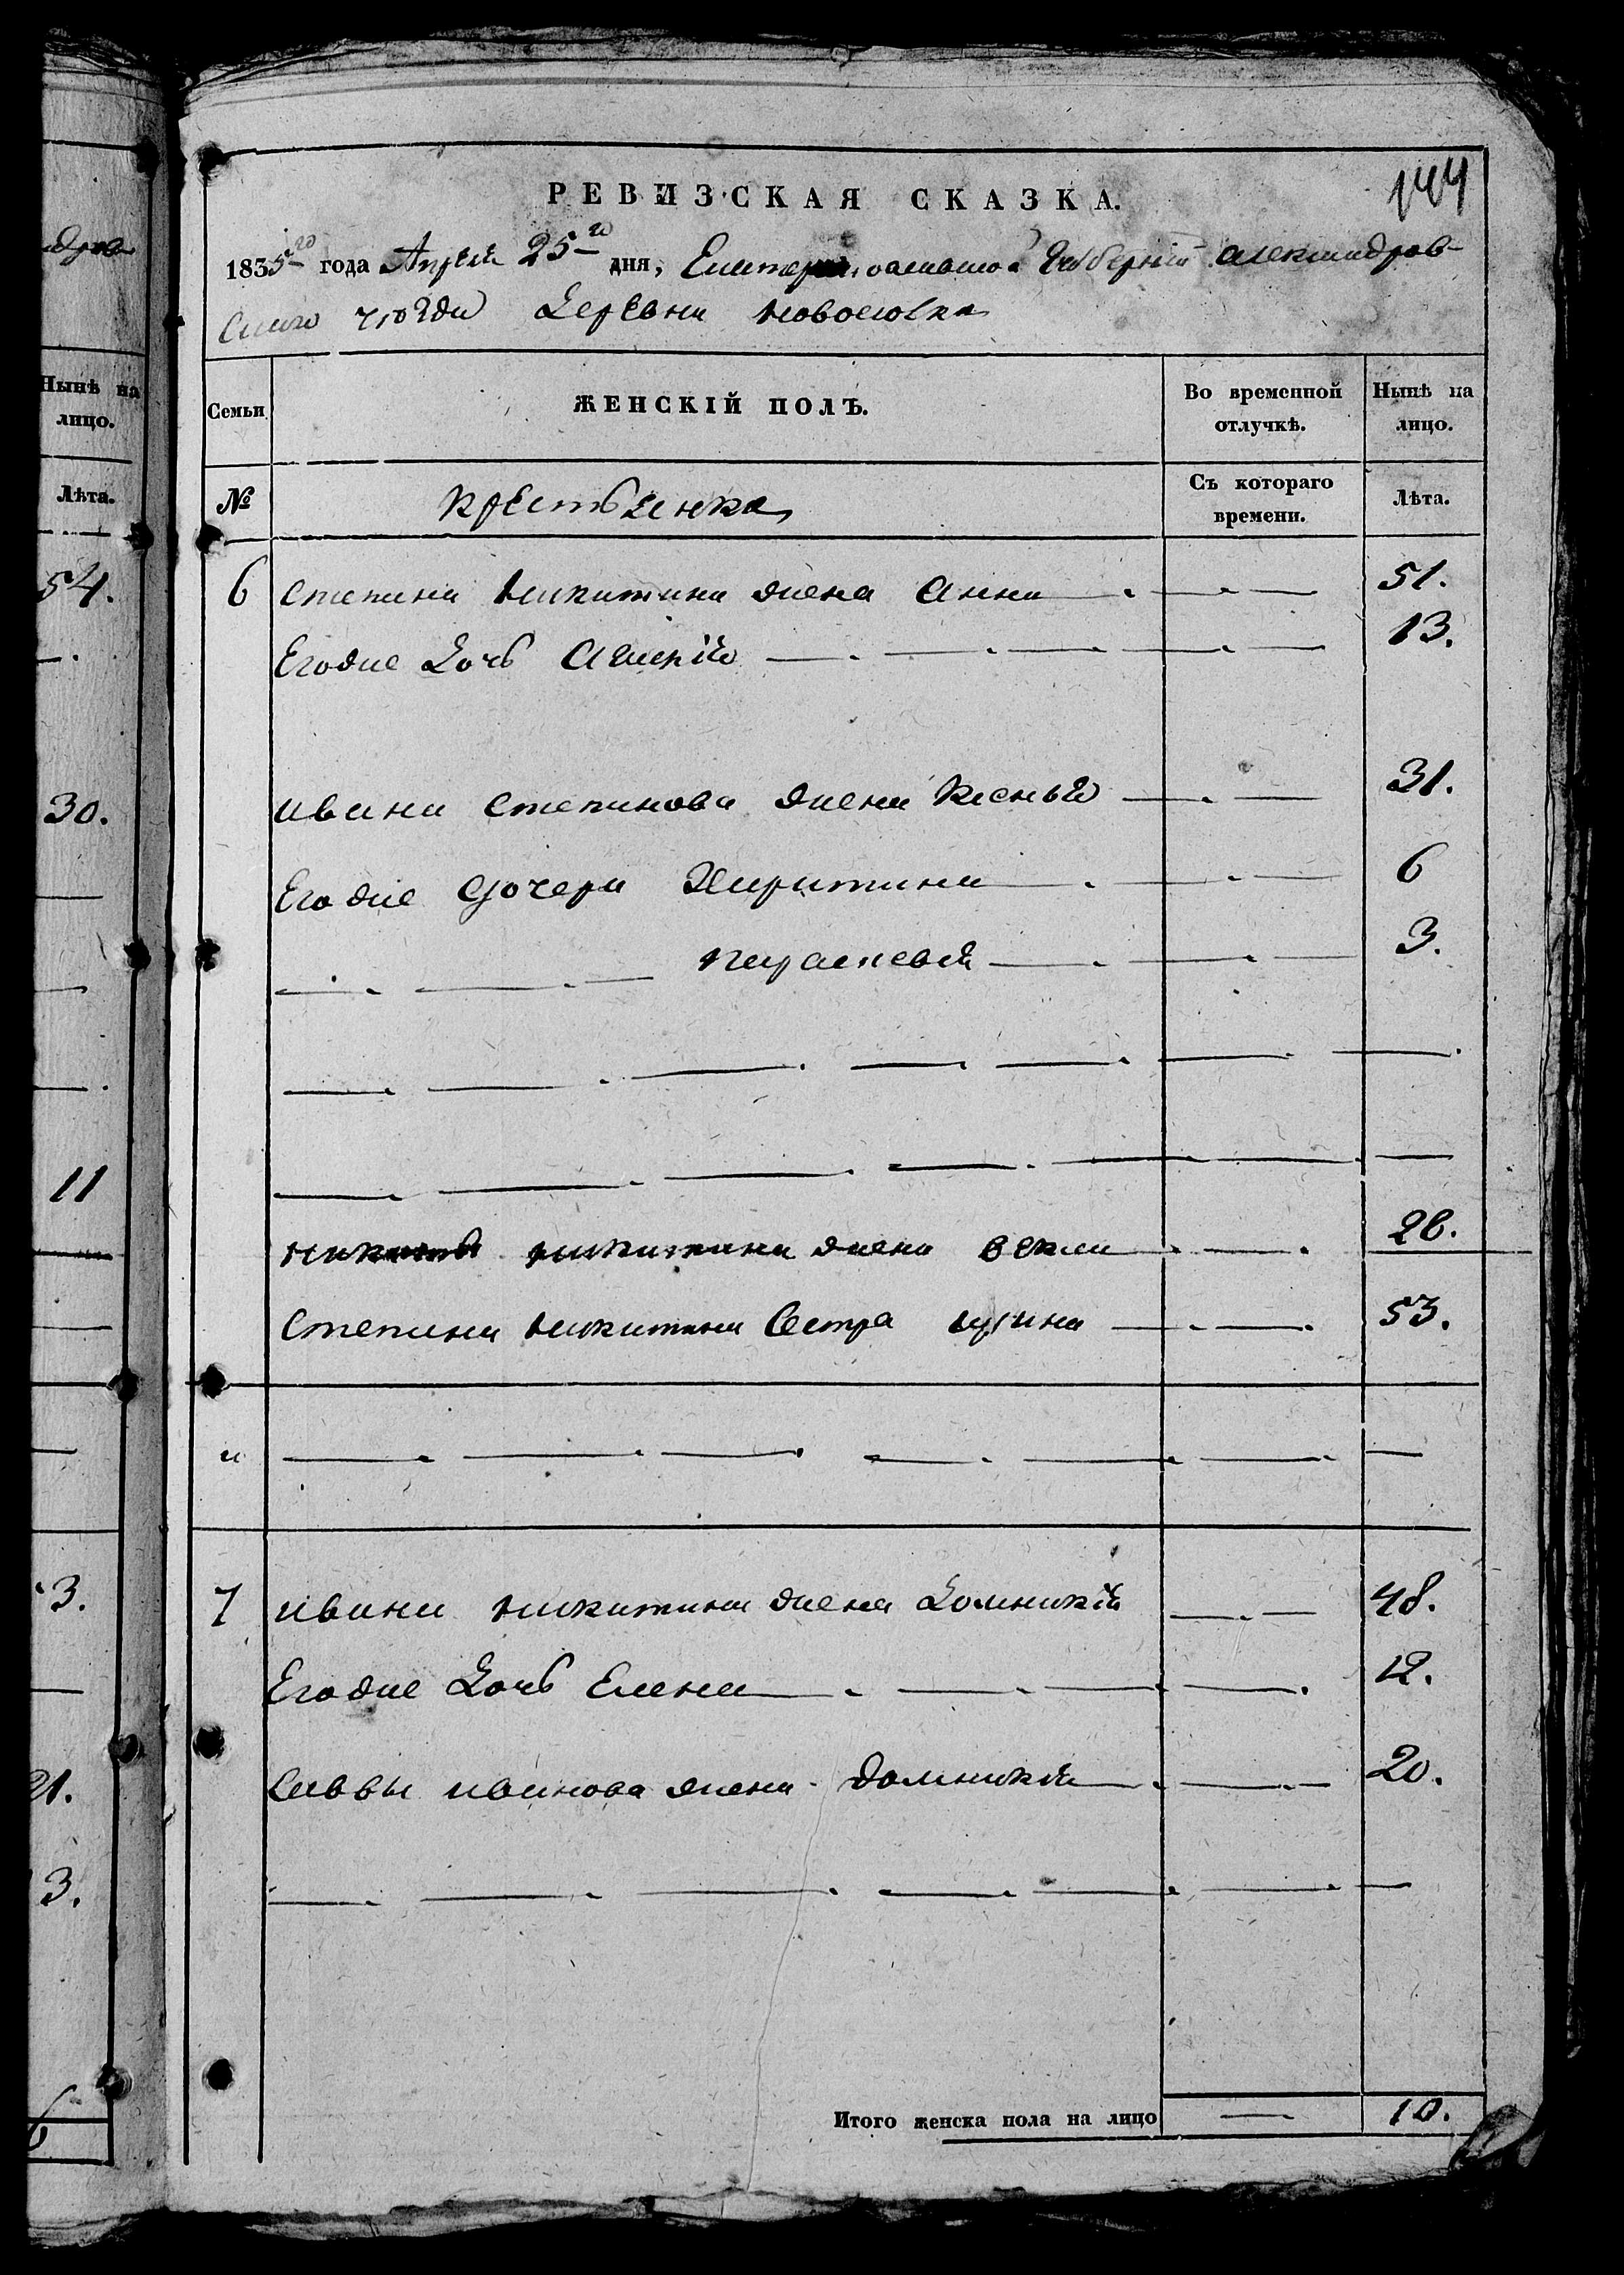 144
РЕВИЗСКАЯ СКАЗКА.
1835го года Апреля 25го дня, Екатеринославской Губернии Александров-
скаго уезда Деревни Новоселовка
Семьи ЖЕНСКІЙ ПОЛЪ. Во временной отлучкѣ. Нынѣ на лицо.
№ крестьянка Съ котораго времени. Лѣта.
6 Степана Никитина жена Анна 51.
Егоже дочь 13.
Ивана Степанова жена Ксенья 31.
Егоже дочери Харитина 6
Парасковия 3.
Никитина жена Векла 26.
Степана Никитина Сестра Ирина 53.
7 Ивана Никитина жена Домникия 48.
Егоже дочь Елена 12.
Саввы Иванова жена Домникия 20.
Итого женска пола на лицо — 10.
Нынѣ на
лицо.
Лѣта.
54.
30.
11
3.
21.
3.
6